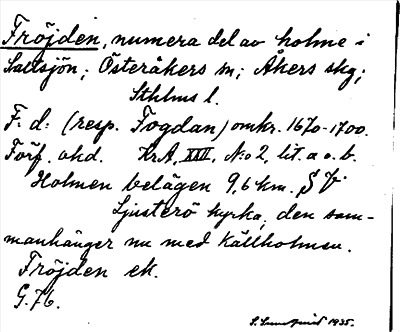 Fröjden, numera del av holme i
Saltsjön; Österåkers sn; Åkers skg;
Sthlms l.
F. d. (resp. Fogdan) omkr. 1670-1700.
Förf. okd. Kr.A, XXVI, N:o 2, lit. a o. b.
Holmen belägen 9,6 km. S V
Ljusterö kyrka, den sam-
manhänger nu med Källholmen.
Fröjden ek.
G. 76.
1935.